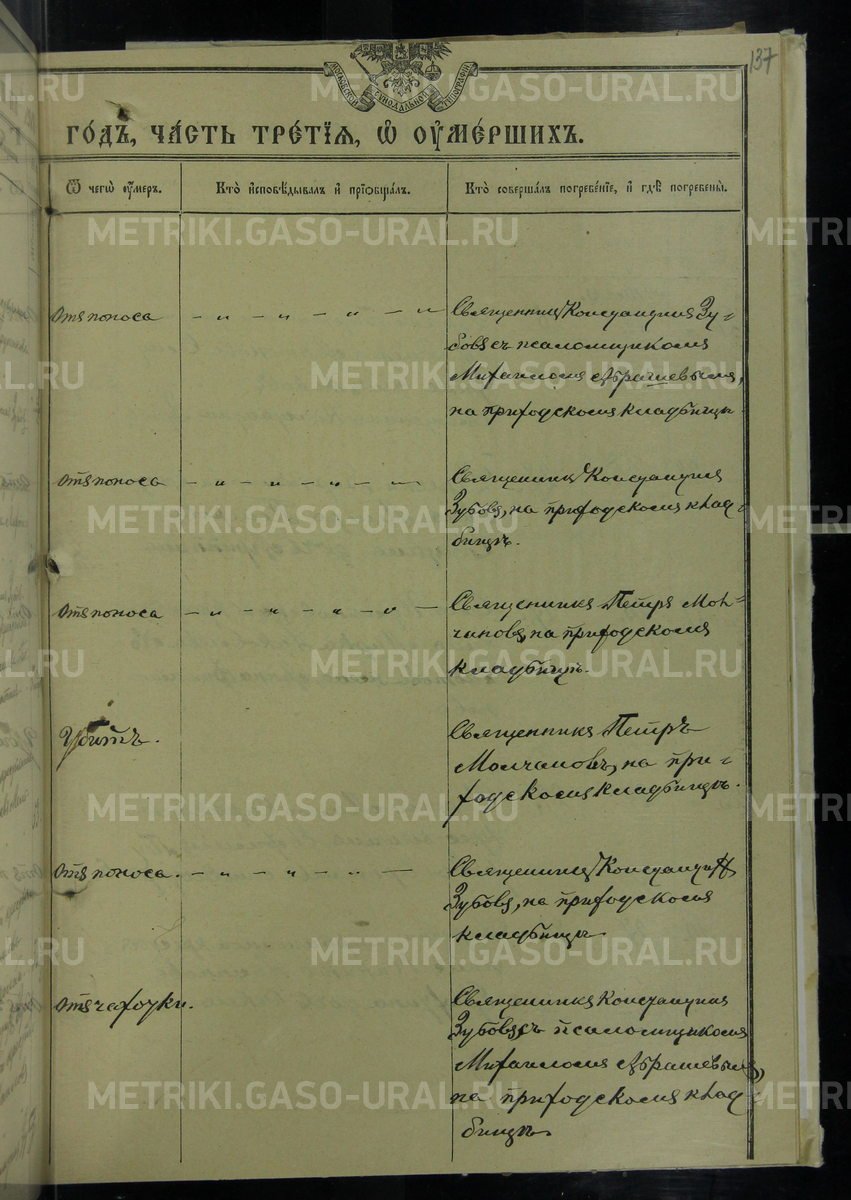 137
МОСКОВСКОЙ СѴНОДАЛЬНОЙ ТИПОГРАФІИ
го́дъ, ча́сть тре́тїѧ, ѡ҆ оу҆ме́ршихъ.
Ѿ чегѡ̀ оу҆́меръ.
Кто̀ и҆сповѣ́дывалъ и҆ прїѡбща́лъ.
Кто̀ соверша́лъ погребе́нїе, и҆ гдѣ̀ погребены̀.
Отъ поноса
— „ — „ — „ — „
Священникъ Константинъ Зу-
бовъ съ псаломщикомъ
Михаиломъ Абрашевымъ,
на приходскомъ кладбищѣ.
Отъ поноса
— „ — „ — „ —
Священникъ Константинъ
Зубовъ, на приходскомъ клад-
бищѣ.
Отъ поноса
— „ — „ — „ — „ —
Священникъ Петръ Мол-
чановъ, на приходскомъ
кладбищѣ.
Убитъ.
Священникъ Петръ
Молчановъ, на при-
ходскомъ кладбищѣ.
Отъ поноса.
— „ — „ — „ —
Священникъ Константинъ
Зубовъ, на приходскомъ
кладбищѣ.
Отъ чахотки.
Священникъ Константинъ
Зубовъ съ псаломщикомъ
Михаиломъ Абрашевымъ,
на приходскомъ клад-
бищѣ.
METRIKI.GASO-URAL.RU